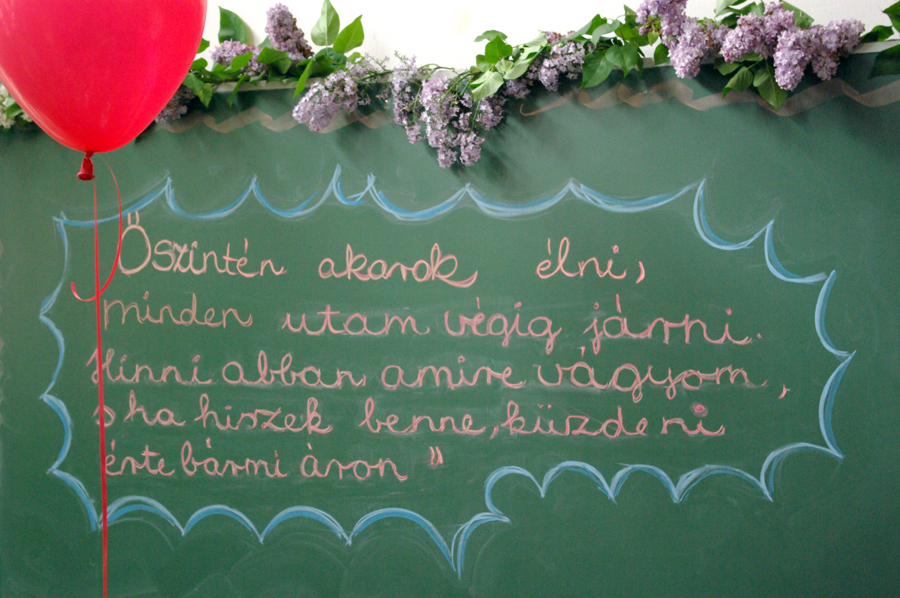 Őszintén akarok élni,
minden utam végig járni.
Hinni abban amire vágyom,
s ha hiszek benne, küzdeni
érte bármi áron"